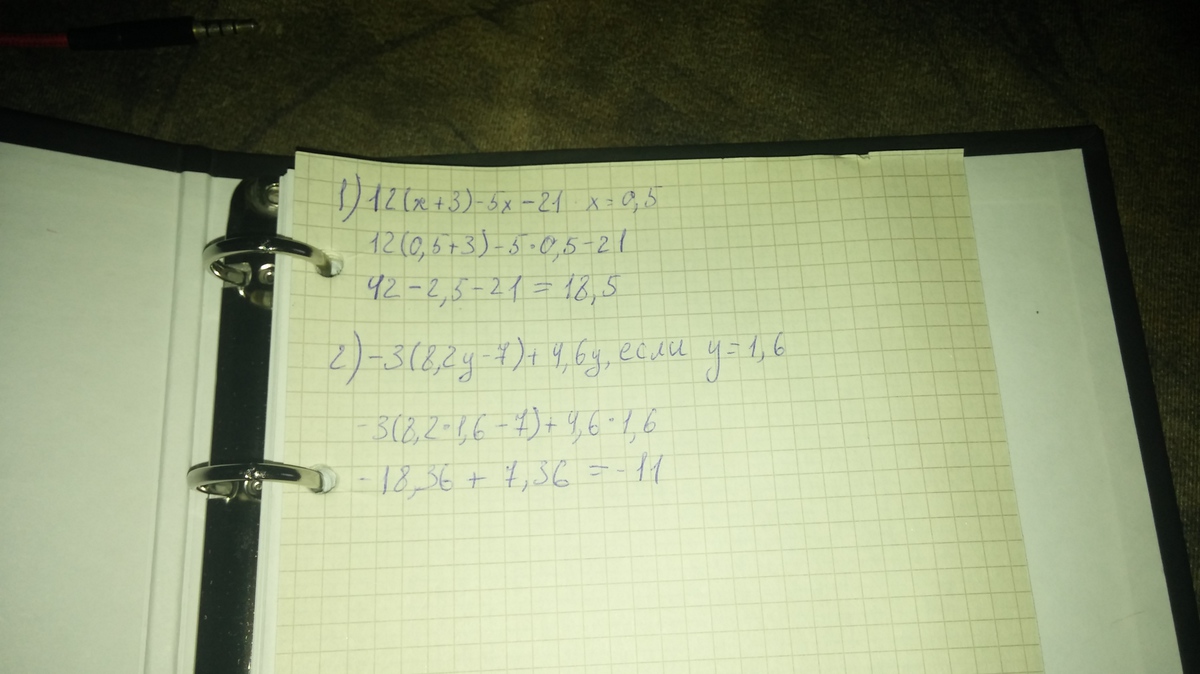 1) 12(x+3)-5x-21 x=0,5
12(0,5+3)-5·0,5-21
42-2,5-21=18,5
2) -3(8,2y-7)+4,6y, если y=1,6
-3(8,2·1,6-7)+4,6·1,6
-18,36+7,36=-11